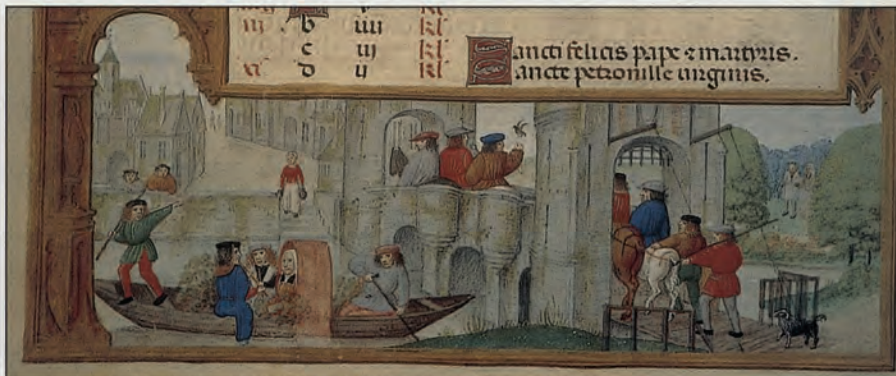 b iiii kl
c iij kl
xi d ij kl Sancti felicis pape ⁊ martyris.
Sancte petronille uirginis.